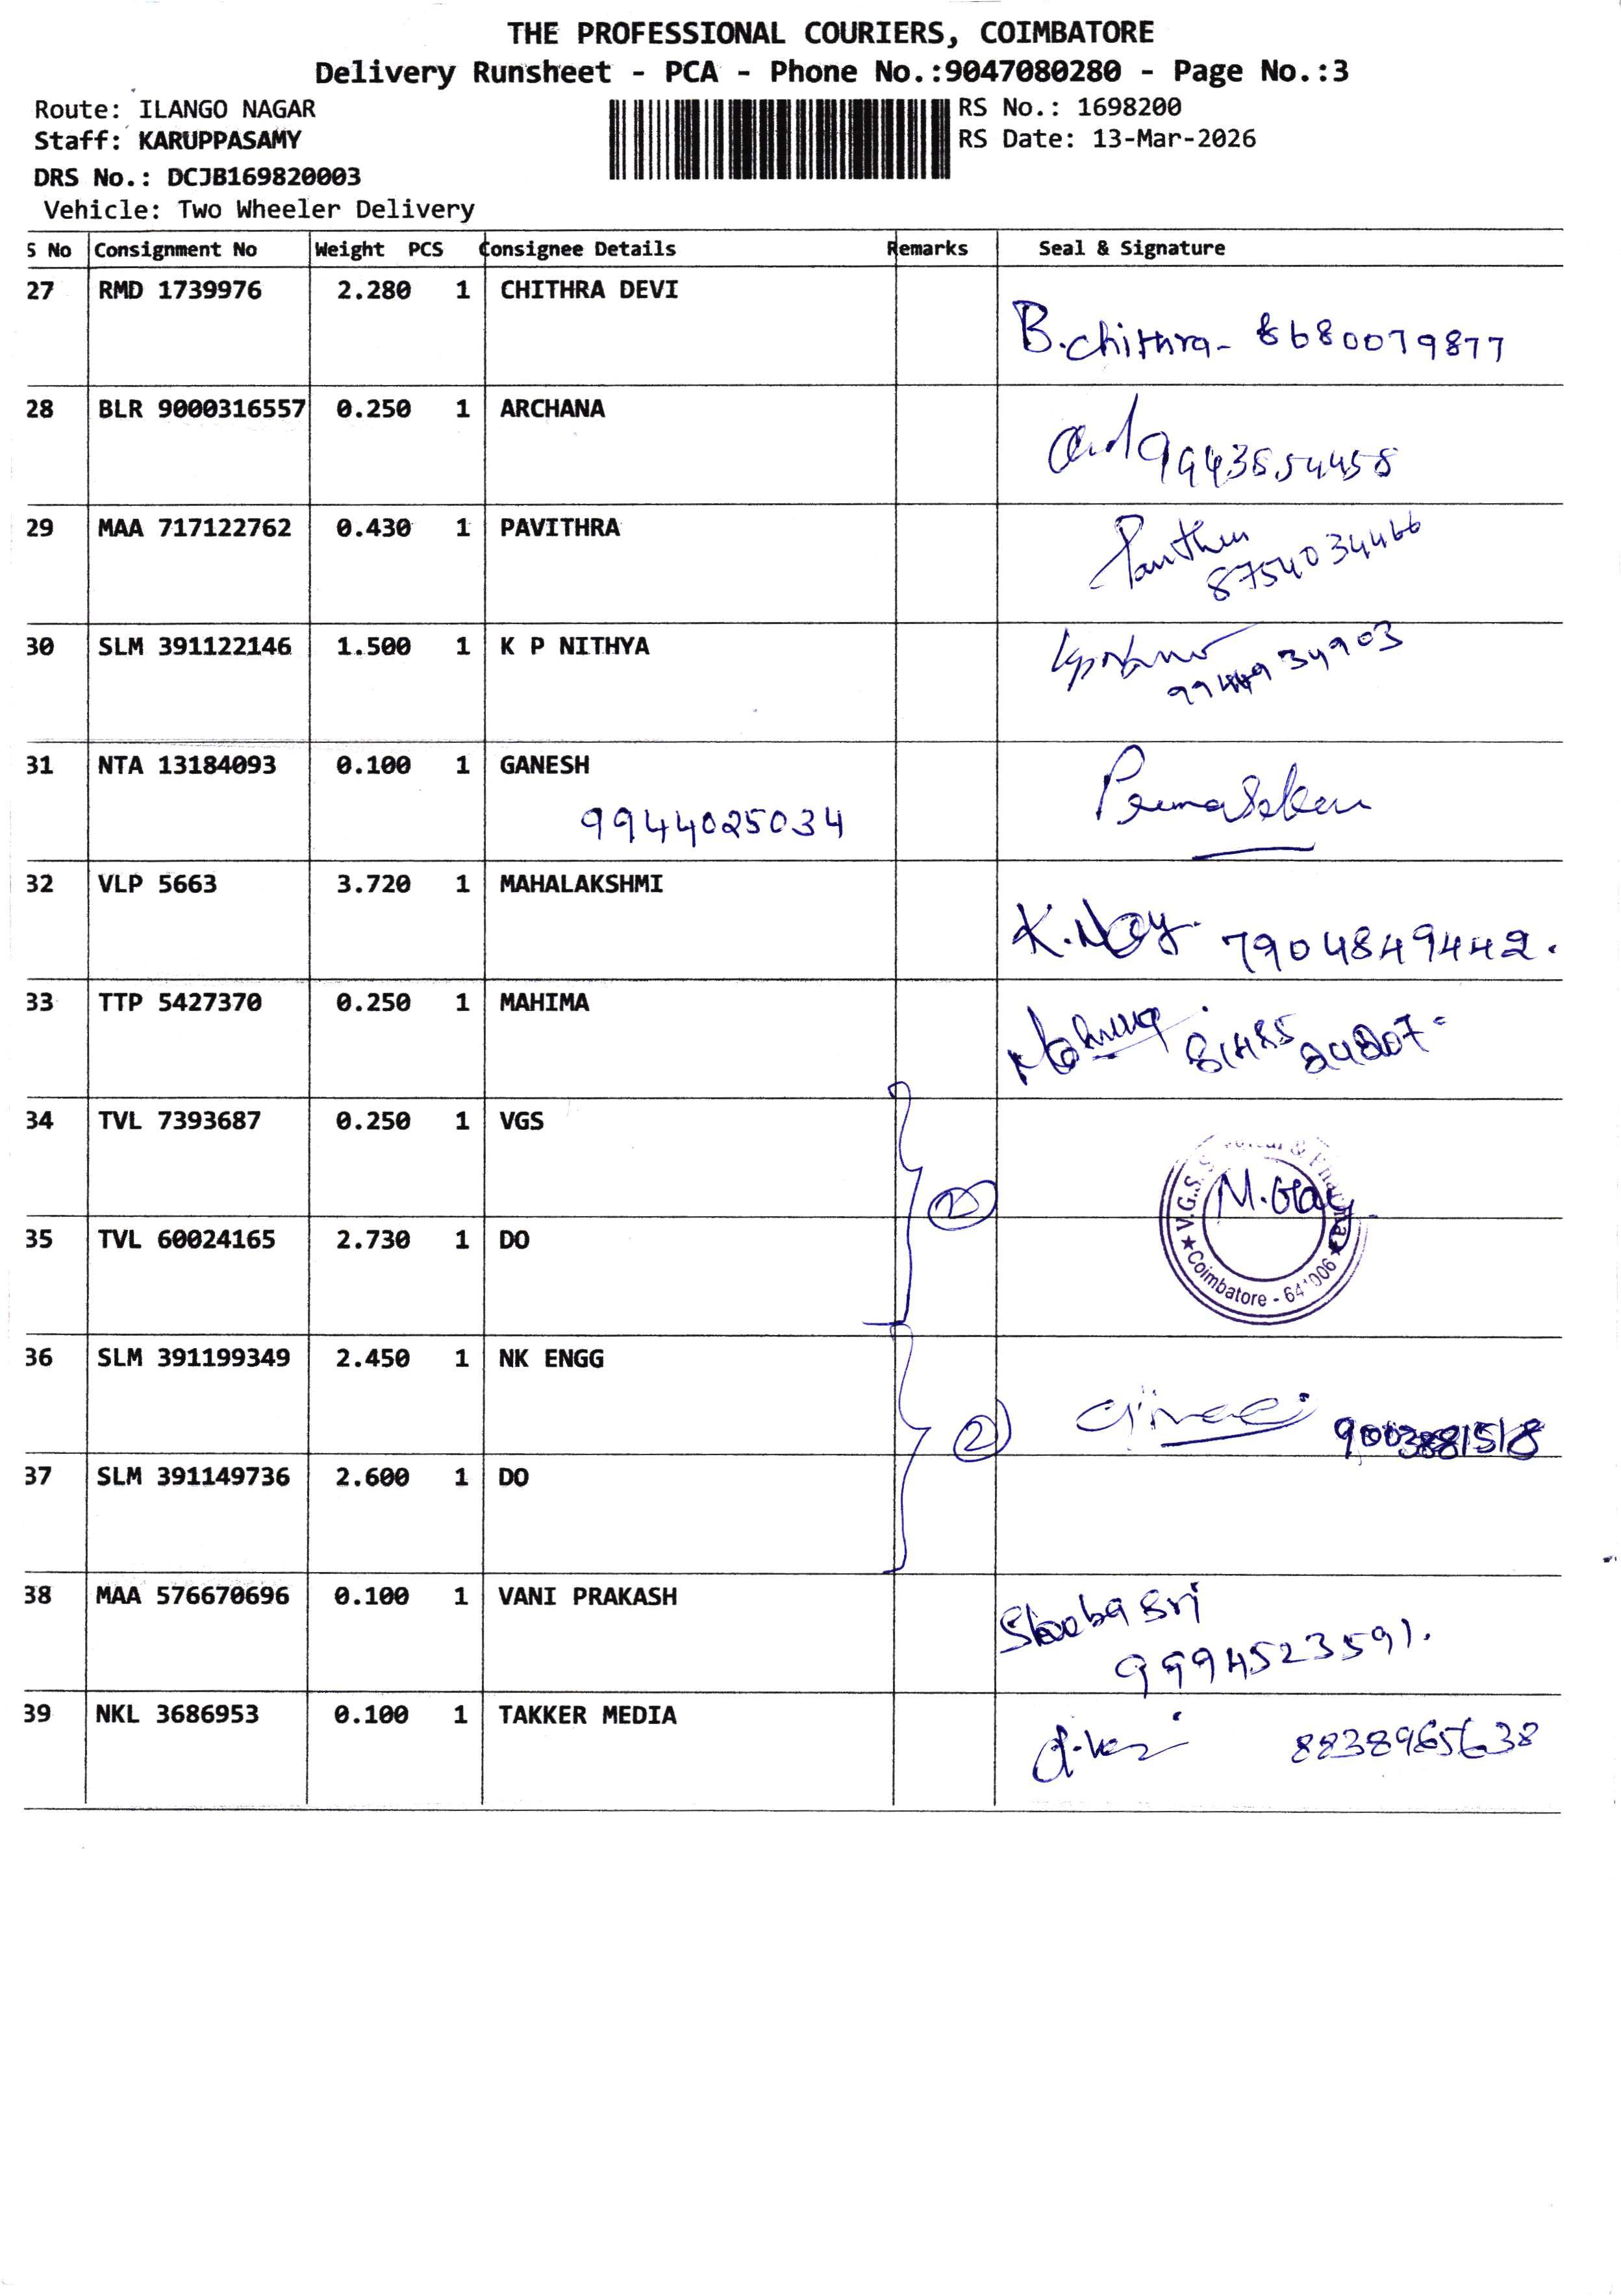 THE PROFESSIONAL COURIERS, COIMBATORE
Delivery Runsheet - PCA - Phone No.:9047080280 - Page No.:3
Route: ILANGO NAGAR
RS No.: 1698200
Staff: KARUPPASAMY
RS Date: 13-Mar-2026
DRS No.: DCJB169820003
Vehicle: Two Wheeler Delivery
S No Consignment No Weight PCS Consignee Details Remarks Seal & Signature
27 RMD 1739976 2.280 1 CHITHRA DEVI
B.chithra- 8680079877
28 BLR 9000316557 0.250 1 ARCHANA
29 MAA 717122762 0.430 1 PAVITHRA
8754034466
30 SLM 391122146 1.500 1 K P NITHYA
31 NTA 13184093 0.100 1 GANESH
9944025034
32 VLP 5663 3.720 1 MAHALAKSHMI
7904849442.
33 TTP 5427370 0.250 1 MAHIMA
34 TVL 7393687 0.250 1 VGS
V.G.S.
35 TVL 60024165 2.730 1 DO
Coimbatore - 641006
36 SLM 391199349 2.450 1 NK ENGG
2
37 SLM 391149736 2.600 1 DO
38 MAA 576670696 0.100 1 VANI PRAKASH
9994523591.
39 NKL 3686953 0.100 1 TAKKER MEDIA
8838965638